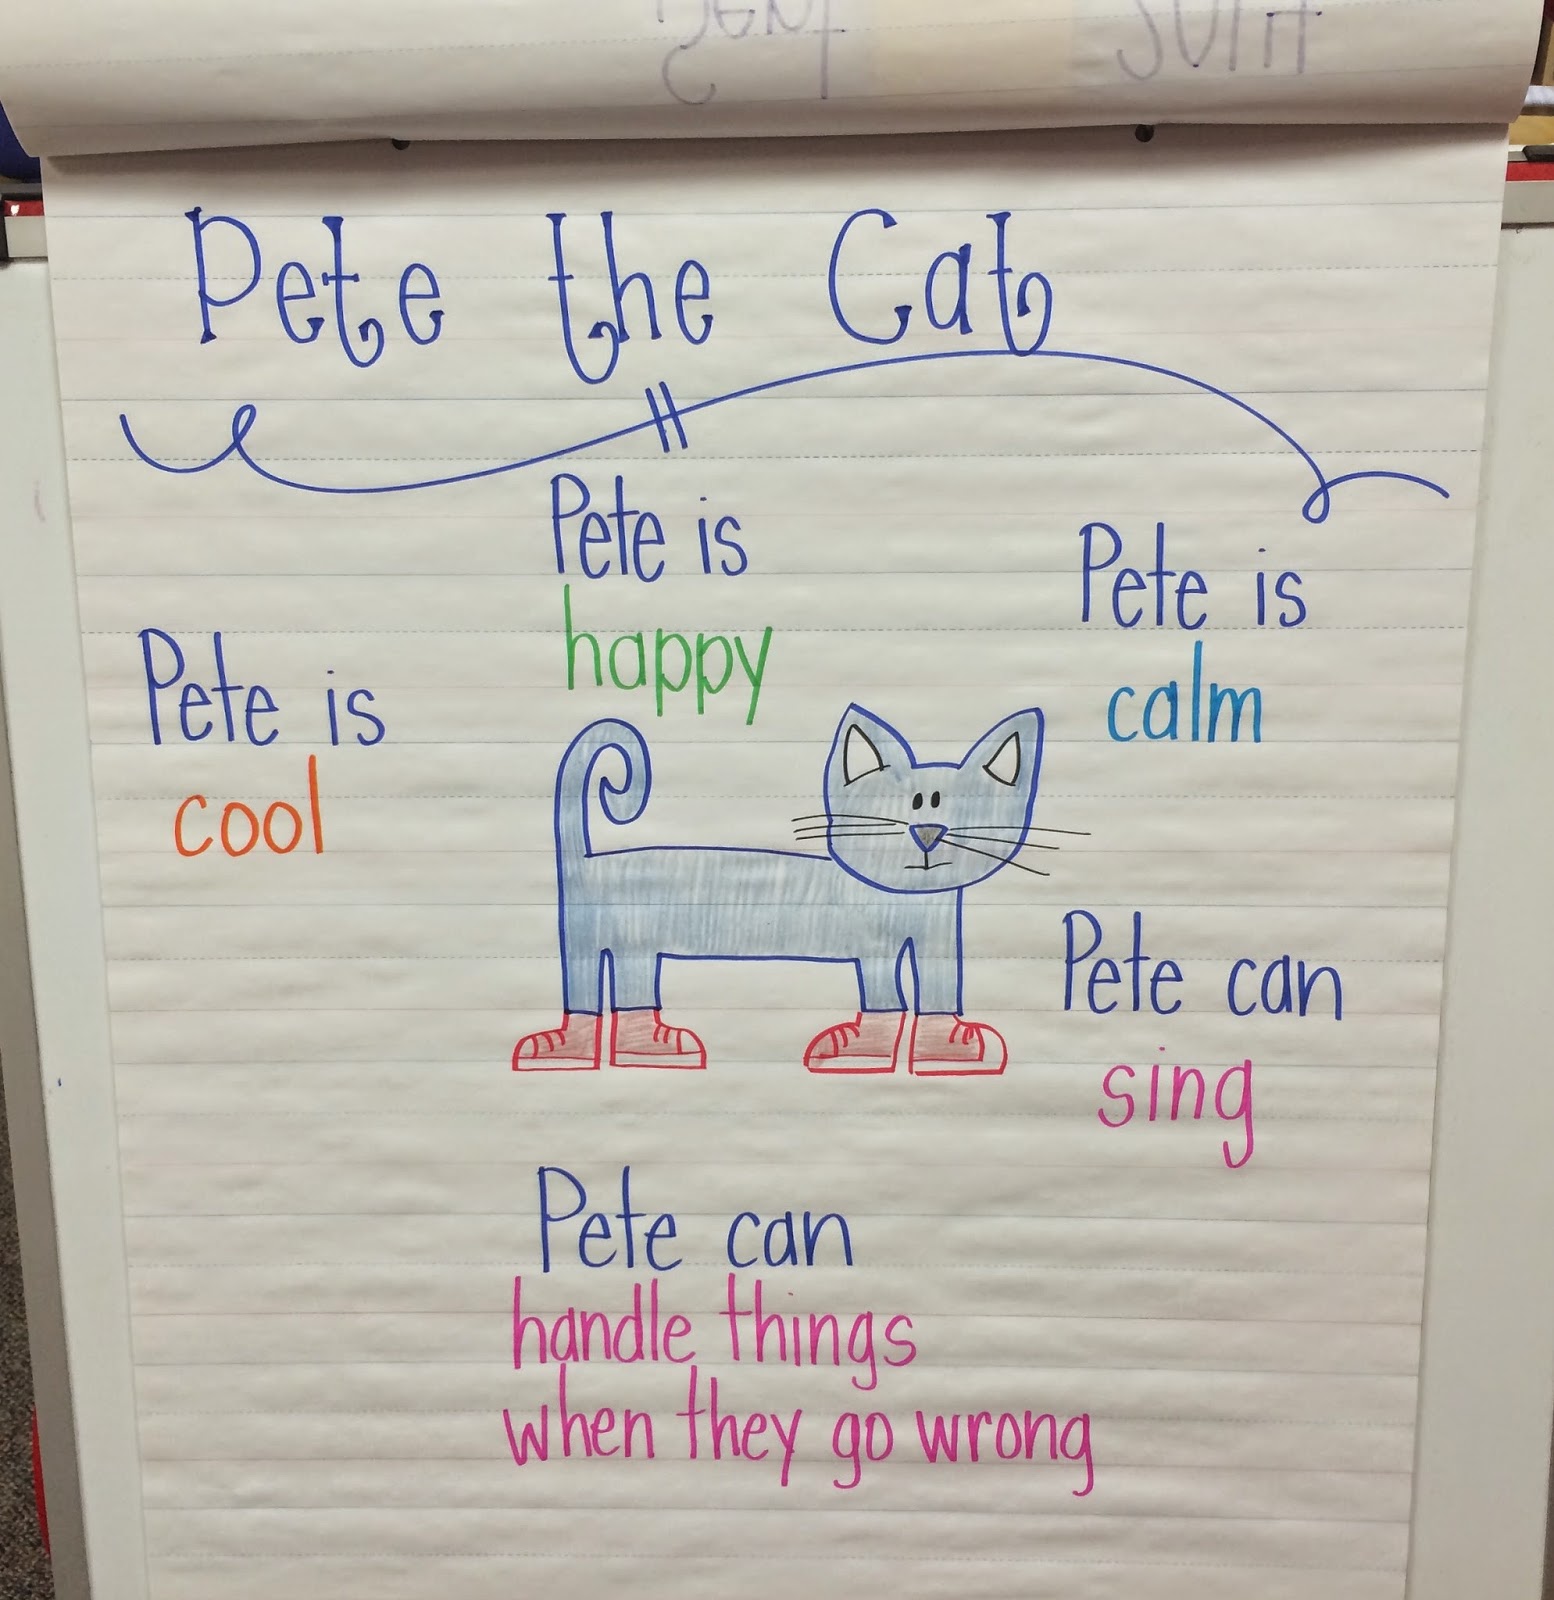 Pete the Cat
Pete is
happy
Pete is
calm
Pete is
cool
Pete can
sing
Pete can
handle things
when they go wrong